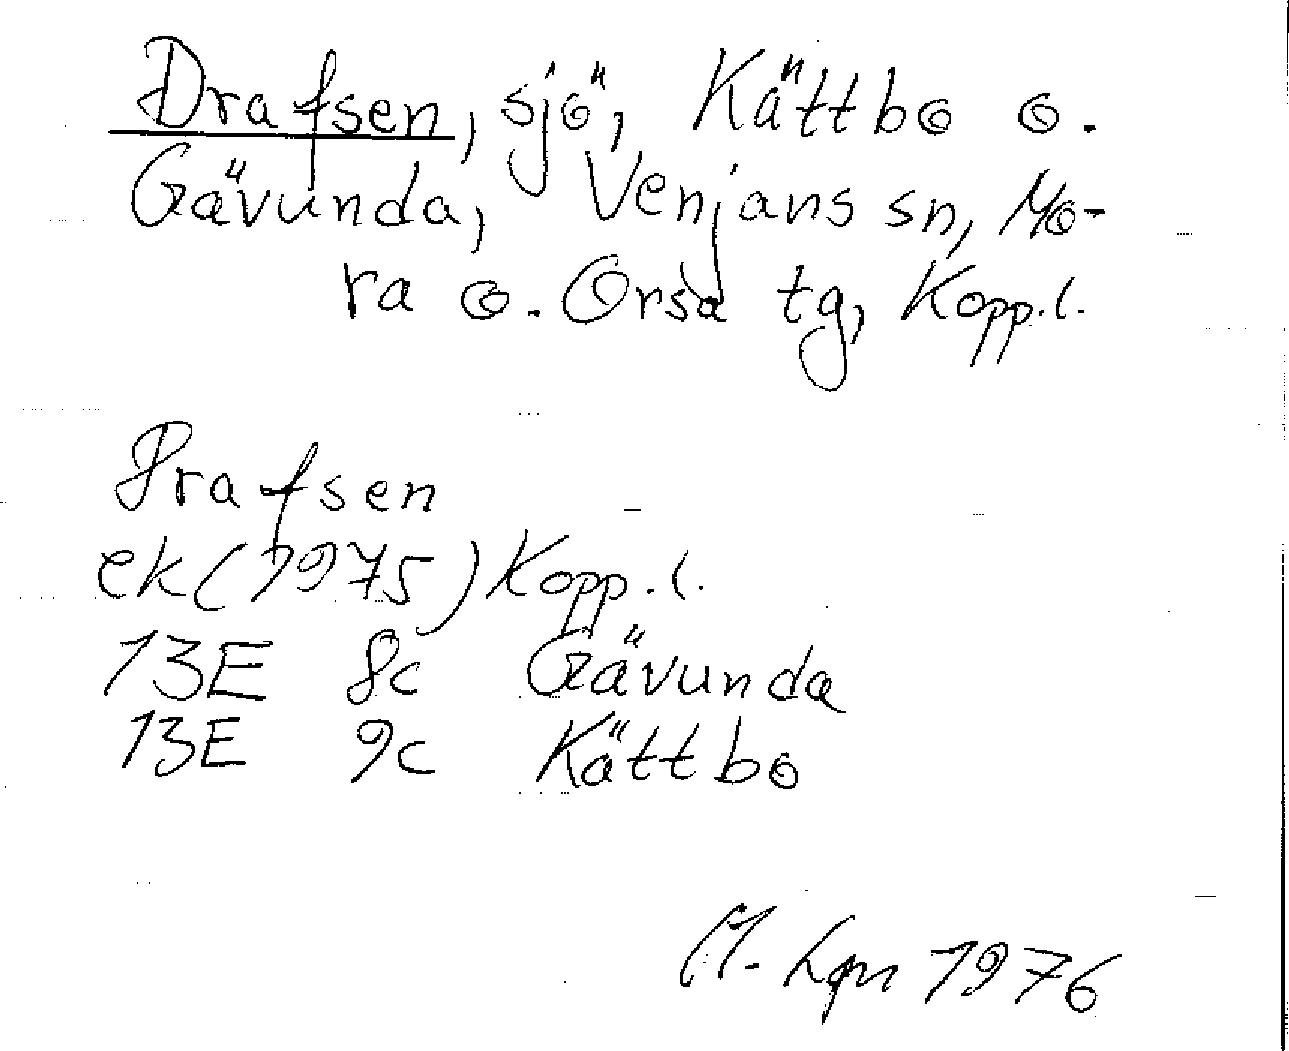 Drafsen, sjö, Kättbo o.
Gävunda, Venjans sn, Mo-
ra o. Orsa tg, Kopp.l.
Drafsen
ek (1975) Kopp.l.
13E 8c Gävunda
13E 9c Kättbo
1976